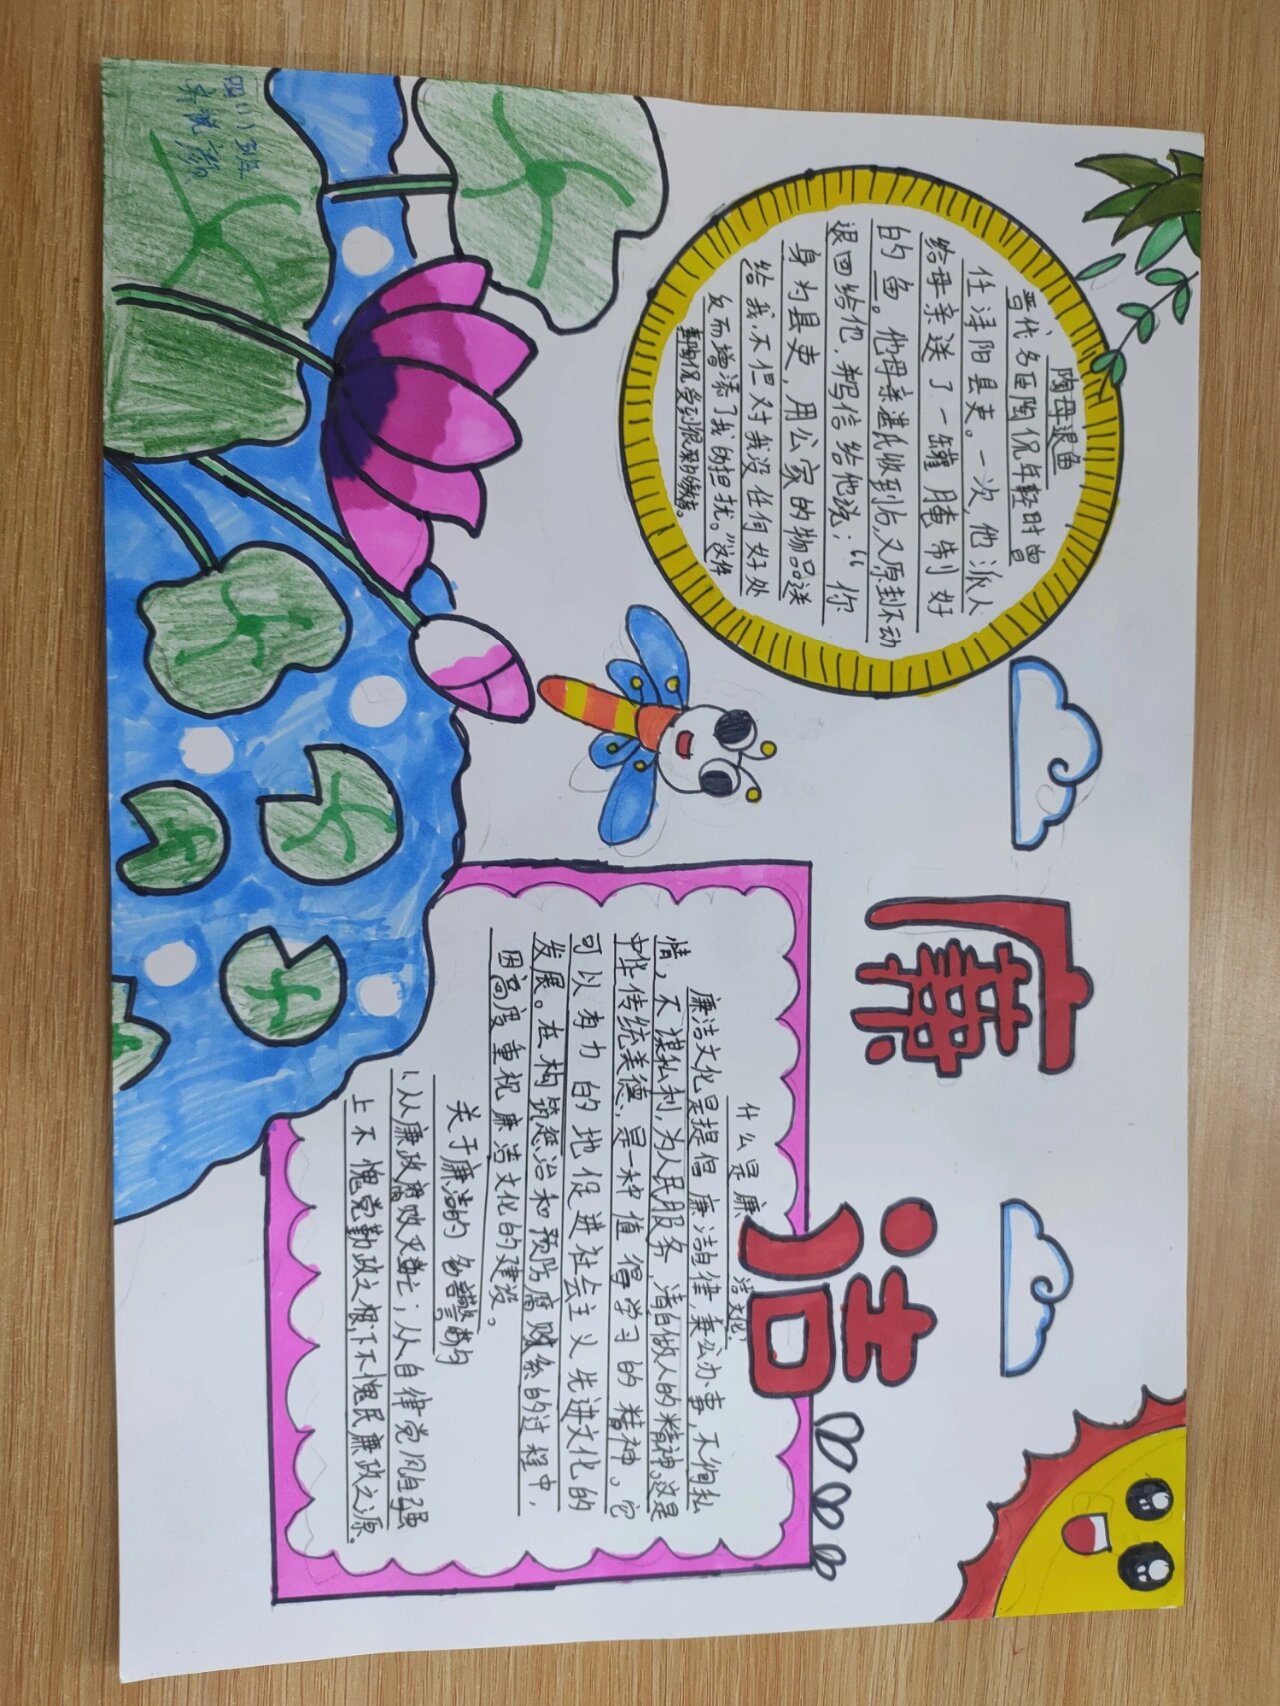 廉洁
陶母退鱼
晋代名臣陶侃年轻时曾
任浔阳县吏。一次,他派人
给母亲送了一罐腌制好
的鱼。他母亲湛氏收到后,又原封不动
退回给他,并写信给他说:“你
身为县吏,用公家的物品送
给我,不但对我没任何好处
反而增添了我的担扰。”这件
事陶侃受到很深的教育。
什么是廉洁文化?
廉洁文化是提倡廉洁自律,秉公办事,不徇私
情,不谋私利,为人民服务,清白做人的精神。这是
中华传统美德,是一种值得学习的精神。它
可以有力的地促进社会主义先进文化的
发展。在构筑惩治和预防腐败系的过程中,
因高度重视廉洁文化的建设。
关于廉洁的名言警句
1、从廉政腐败灭亡;从自律党风自强
上不愧党勤政之根,下不愧民廉政之源。
四(1)班